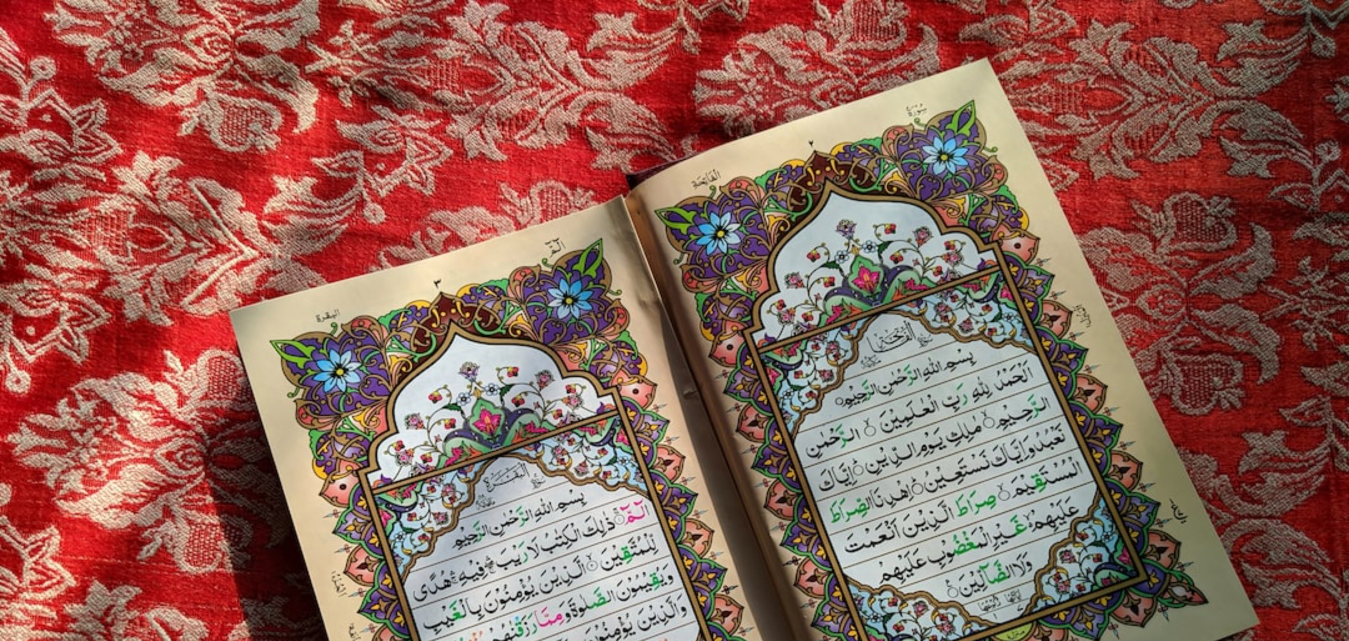 سورة
٢
الفاتحة
بِسْمِ اللهِ الرَّحْمٰنِ الرَّحِيْمِ
اَلْحَمْدُ لِلّٰهِ رَبِّ الْعٰلَمِيْنَ ۙ الرَّحْمٰنِ
الرَّحِيْمِ ۙ مٰلِكِ يَوْمِ الدِّيْنِ ؕ اِيَّاكَ
نَعْبُدُ وَاِيَّاكَ نَسْتَعِيْنُ ؕ اِهْدِنَا الصِّرَاطَ
الْمُسْتَقِيْمَ ۙ صِرَاطَ الَّذِيْنَ اَنْعَمْتَ
عَلَيْهِمْ ۙ غَيْرِ الْمَغْضُوْبِ عَلَيْهِمْ
وَلَا الضَّآلِّيْنَ
الٓمّٓ
٣
البقرة
الْبَقَرَةِ
بِسْمِ اللهِ الرَّحْمٰنِ الرَّحِيْمِ
الٓمّٓ ۚ ذٰلِكَ الْكِتٰبُ لَا رَيْبَ ۛ فِيْهِ ۛ هُدًى
لِّلْمُتَّقِيْنَ ۙ الَّذِيْنَ يُؤْمِنُوْنَ بِالْغَيْبِ
وَيُقِيْمُوْنَ الصَّلٰوةَ وَمِمَّا رَزَقْنٰهُمْ
وَالَّذِيْنَ يُؤْمِنُوْنَ